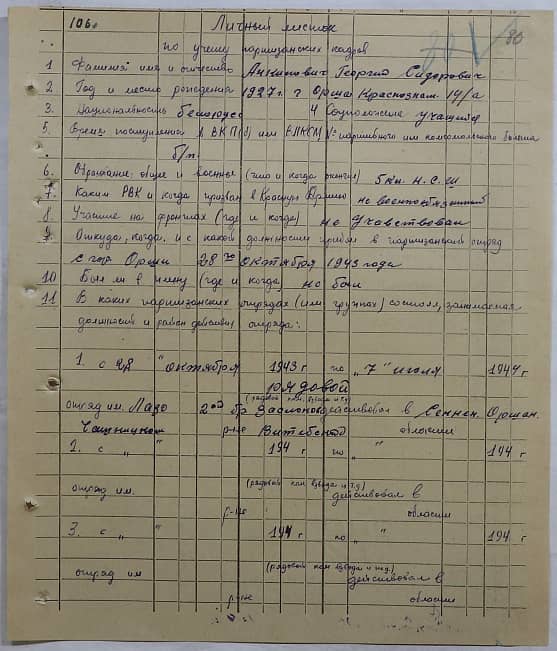 106.
80
Личный листок
по учету партизанских кадров
1 Фамилия имя и отчество Аникович Георгий Сидорович
2 Год и место рождения 1927 г. г Орша Краснознам. 14/а
3. Национальность белорусс 4 Соцположение учащийся
5. Время поступления в ВКП(б) или ВЛКСМ № партийного или комсомольского билета
б/п.
6. Образование общее и военное (что и когда окончил) 5 кл. Н.С.Ш
7. Каким РВК и когда призван в Красную Армию не военнообязанный
8. Участие на фронтах (где и когда) не участвовал
9. Откуда, когда, и с какой должности прибыл в партизанский отряд
с гор Орши 28 го октября 1943 года
10 Был ли в плену (где и когда) не был
11 В каких партизанских отрядах (или группах) состоял, занимаемая
должность и район действия отряда:
1. с 28 " октября 1943 г по „7" июля 1944 г
рядовой
(рядовой ком. взвода и т.д.)
отряд им. Лазо 2ой бр Заслонова действовал в Сеннен. Оршан.
р-не Витебской области
2. с „ " 194 г по „ " 194 г
(рядовой ком взвода и т.д.)
отряд им. действовал в
р-не области
3. с „ " 194 г по „ " 194 г
(рядовой ком взвода и т.д.)
отряд им действовал в
р-не области